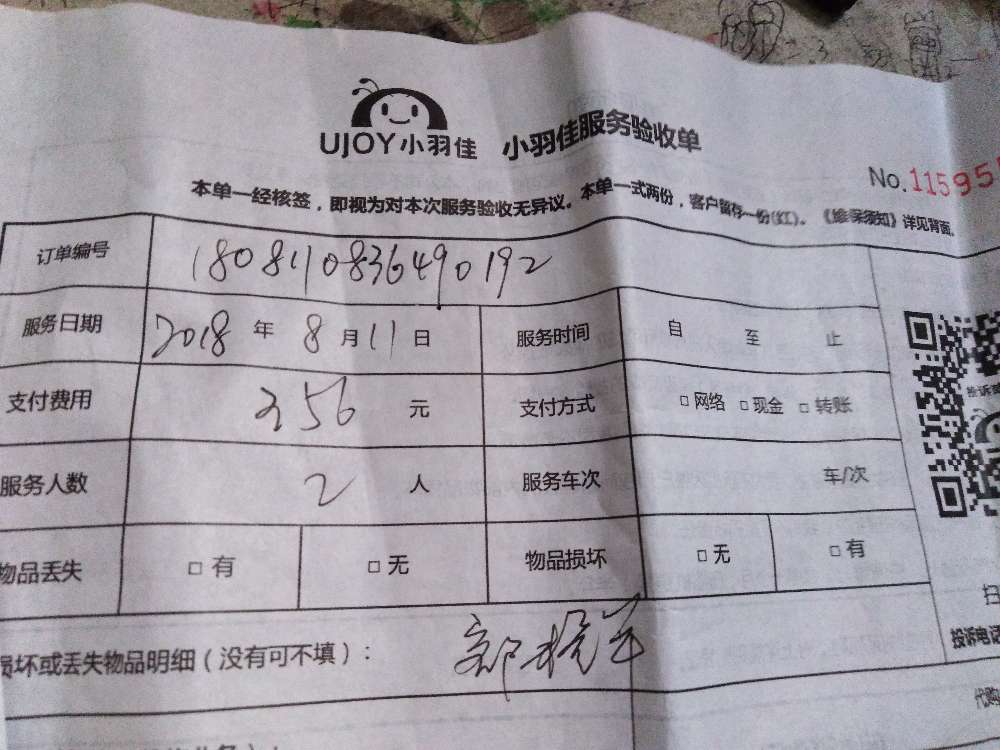 UJOY小羽佳 小羽佳服务验收单
No.11595
本单一经核签，即视为对本次服务验收无异议。本单一式两份，客户留存一份(红)。《维保须知》详见背面。
订单编号 1808110836490192
服务日期 2018 年 8 月 11 日 服务时间 自 至 止
支付费用 356 元 支付方式 □ 网络 □ 现金 □ 转账
服务人数 2 人 服务车次 车/次
物品丢失 □ 有 □ 无 物品损坏 □ 无 □ 有
损坏或丢失物品明细（没有可不填）：
扫
投诉电话
代购